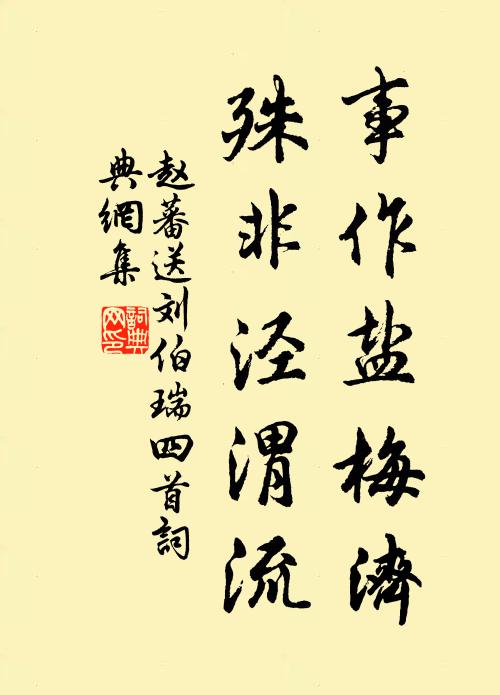 事作盐梅济
殊非泾渭流
赵蕃送刘伯瑞四首詞
典網集
詞典
网印